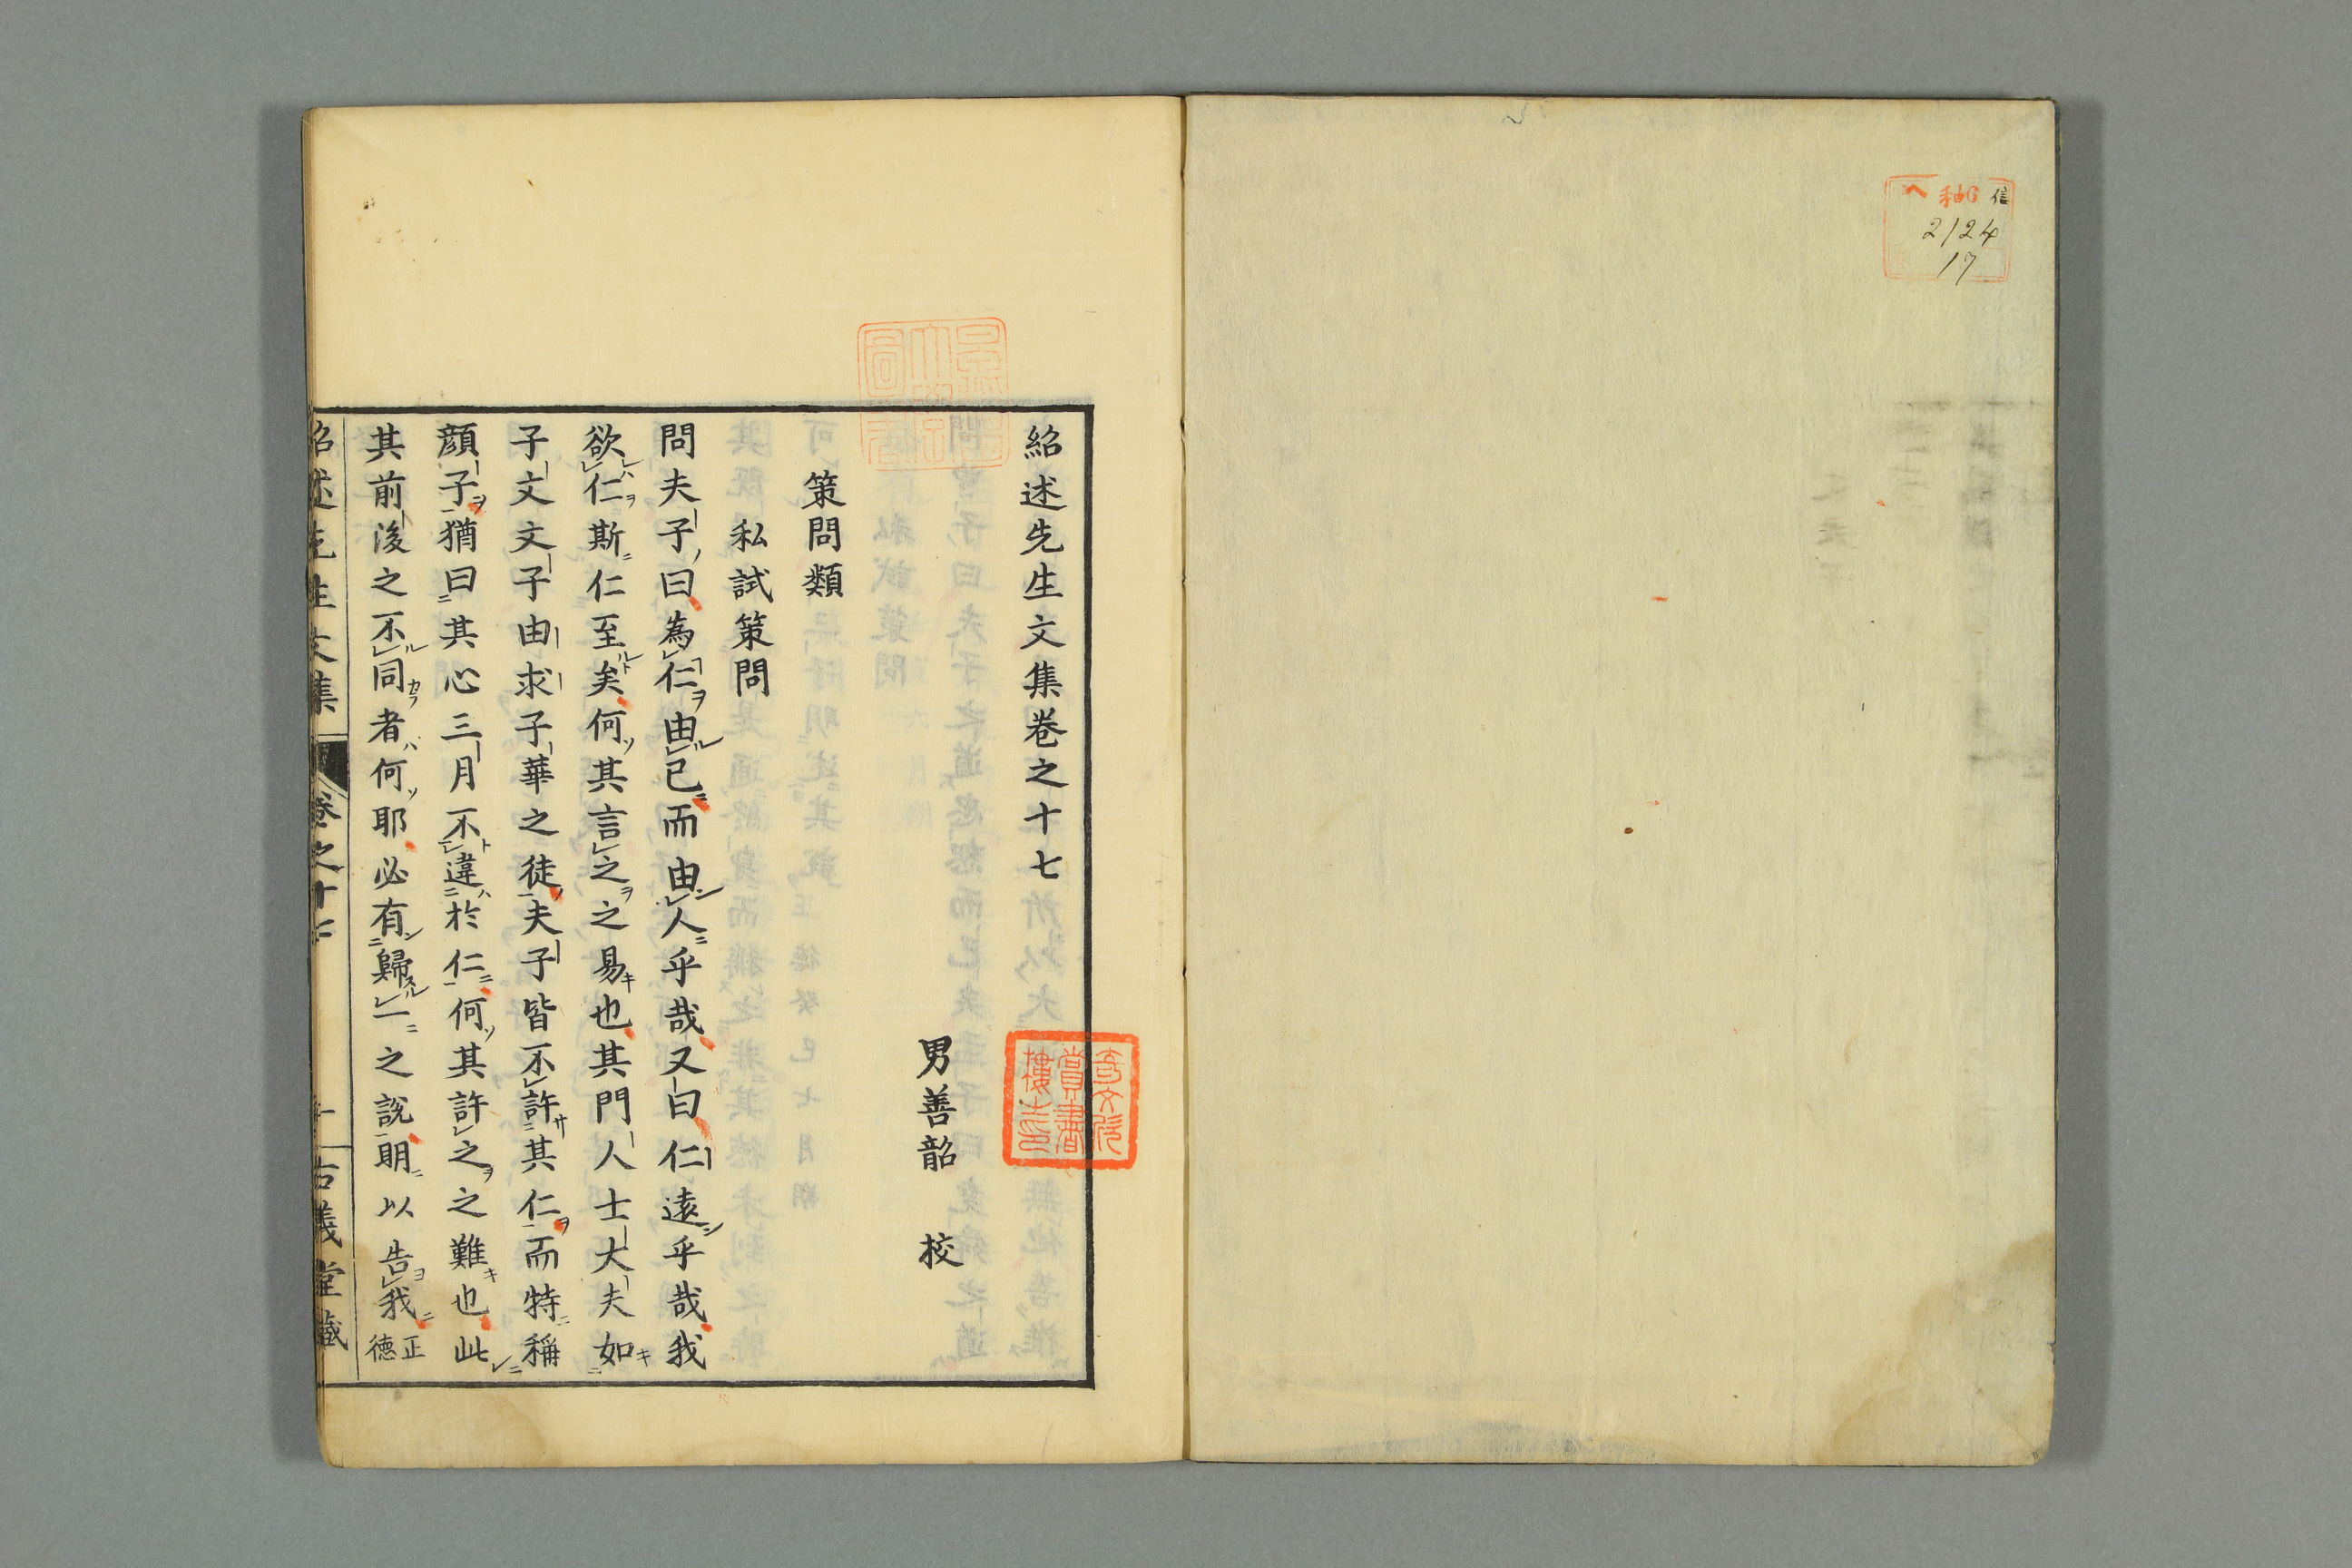 2124
17
紹述先生文集卷之十七
男善韶 校
策問類
私試策問
問夫子曰為仁由已而由人乎哉又曰仁遠乎哉我
欲仁斯仁至矣何其言之之易也其門人士大夫如
子文文子由求子華之徒夫子皆不許其仁而特稱
顔子猶曰其心三月不違於仁何其許之之難也此
其前後之不同者何耶必有歸一之說明以告我正德
紹述先生文集 卷之十七 古義堂藏